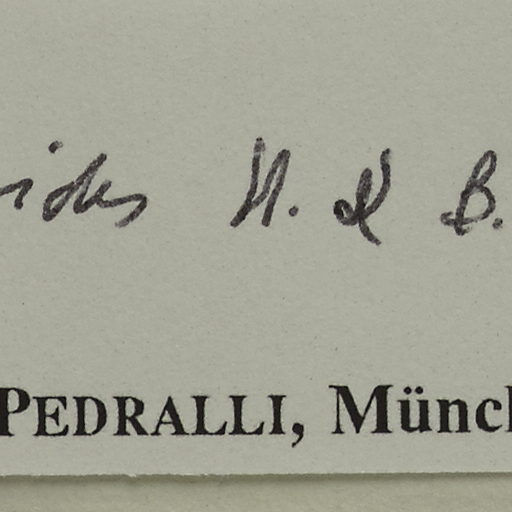 ides H. & B.
PEDRALLI, Münch